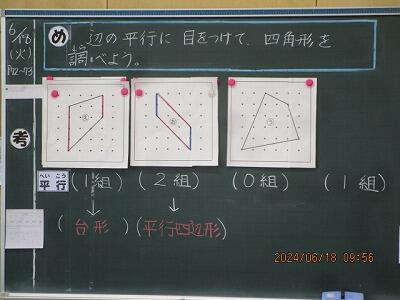 6/18
(火)
P72~73
め 辺の平行に目をつけて、四角形を
調べよう。
考
平行 (1組) (2組) (0組) (1組)
へいこう
(台形) (平行四辺形)
2024/06/18 09:56